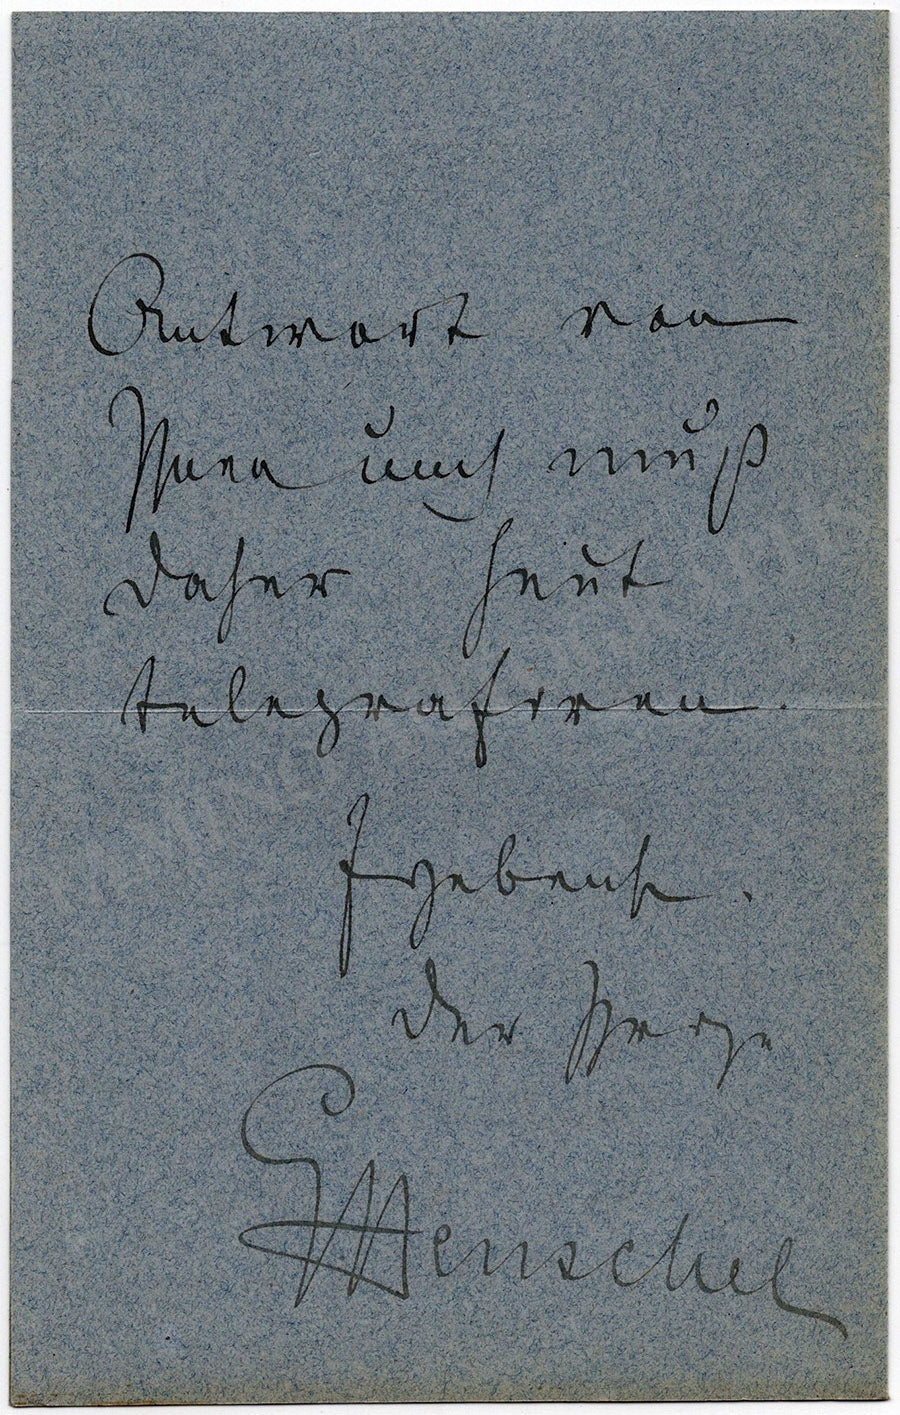 Antwort von
Ihnen muß
daher heut
telegrafiren.
Ergebenst.
der Ihrige
GHenschel